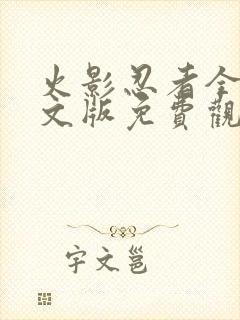 火影忍者全
文版免費觀
宇文邕